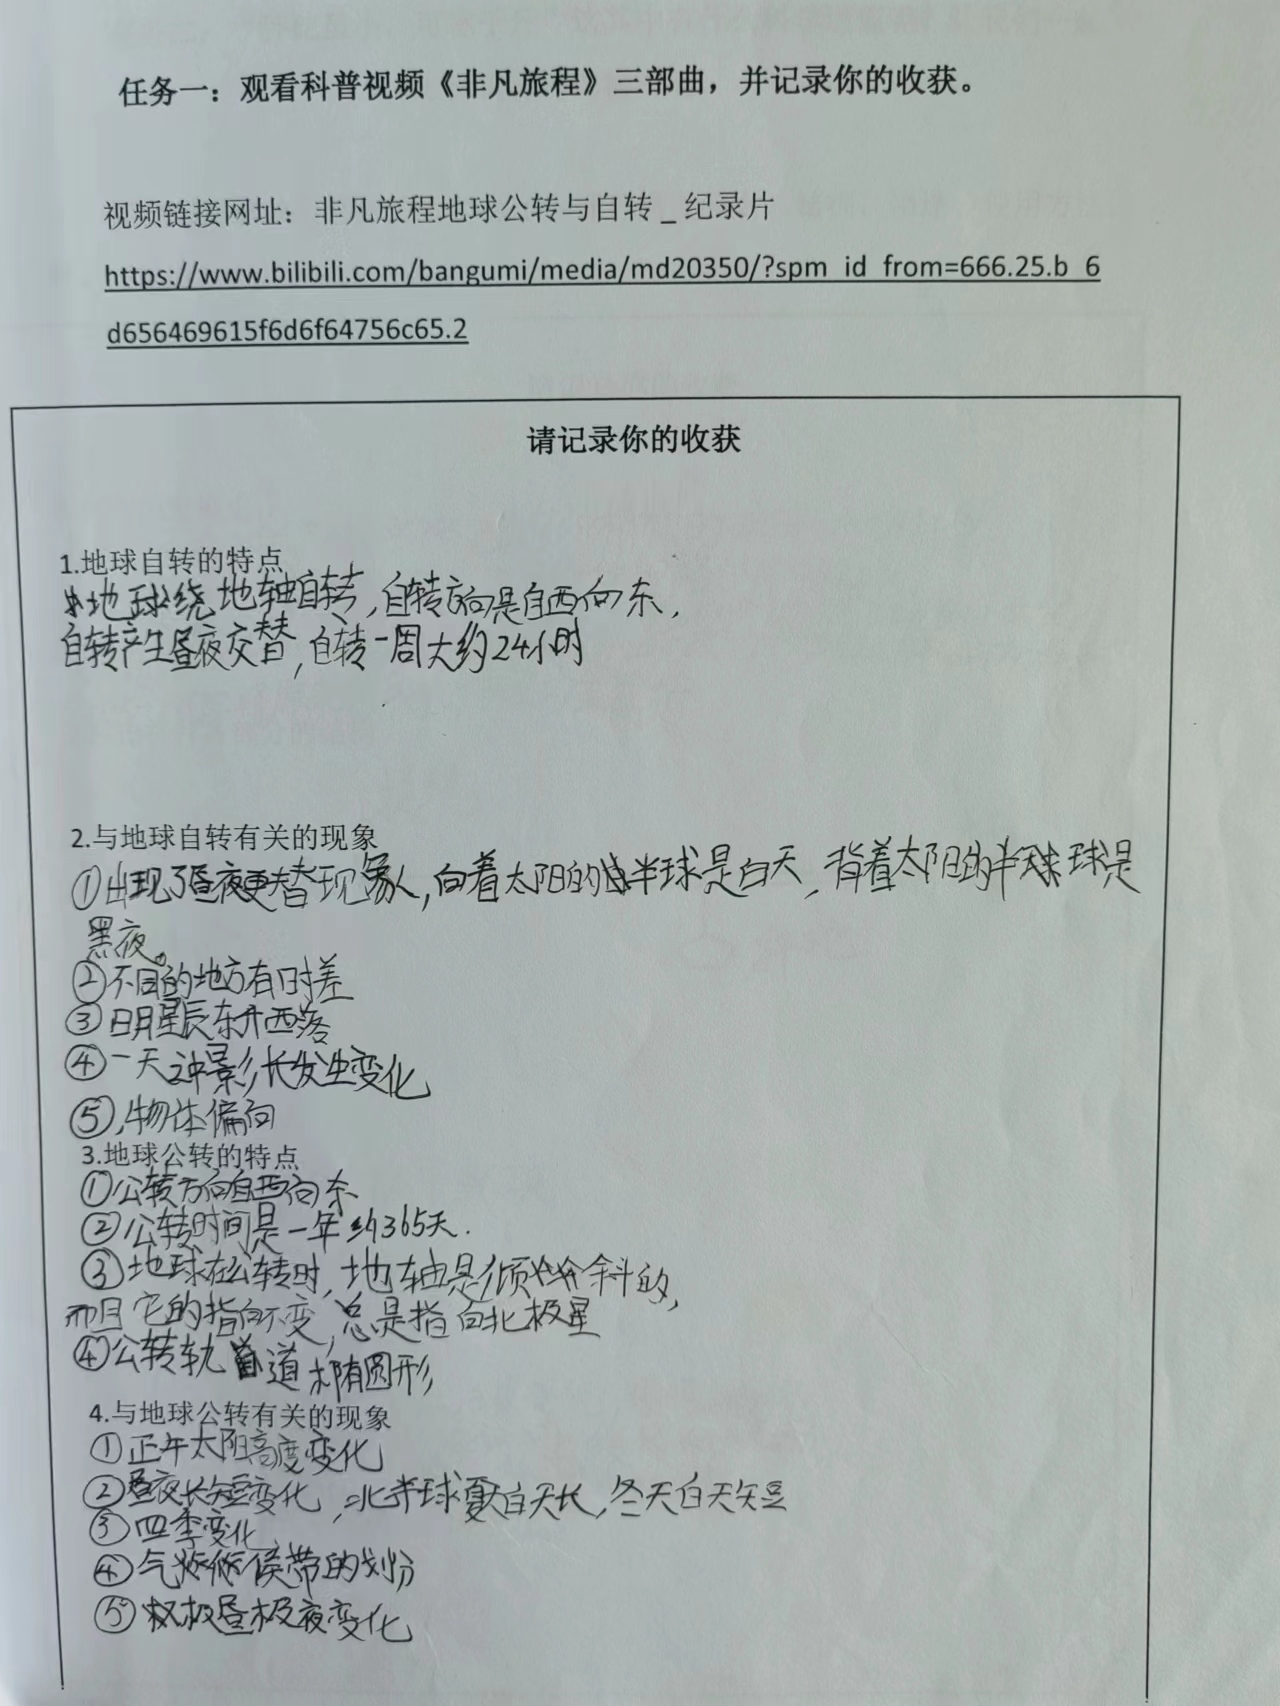 任务一：观看科普视频《非凡旅程》三部曲，并记录你的收获。
视频链接网址：非凡旅程地球公转与自转_纪录片
https://www.bilibili.com/bangumi/media/md20350/?spm_id_from=666.25.b_6
d656469615f6d6f64756c65.2
请记录你的收获
1.地球自转的特点
地球绕地轴自转，自转方向是自西向东，
自转产生昼夜交替，自转一周大约24小时
2.与地球自转有关的现象
①出现了昼夜更替现象，向着太阳的半球是白天，背着太阳的半球是
黑夜。
②不同的地方有时差
③日月星辰东升西落
④一天之中影长发生变化
⑤物体偏向
3.地球公转的特点
①公转方向自西向东
②公转时间是一年约365天.
③地球在公转时，地轴是倾斜的，
而且它的指向不变，总是指向北极星
④公转轨道椭圆形
4.与地球公转有关的现象
①正午太阳高度变化
②昼夜长短变化，北半球夏天白天长，冬天白天短
③四季变化
④气候带的划分
⑤极昼极夜变化